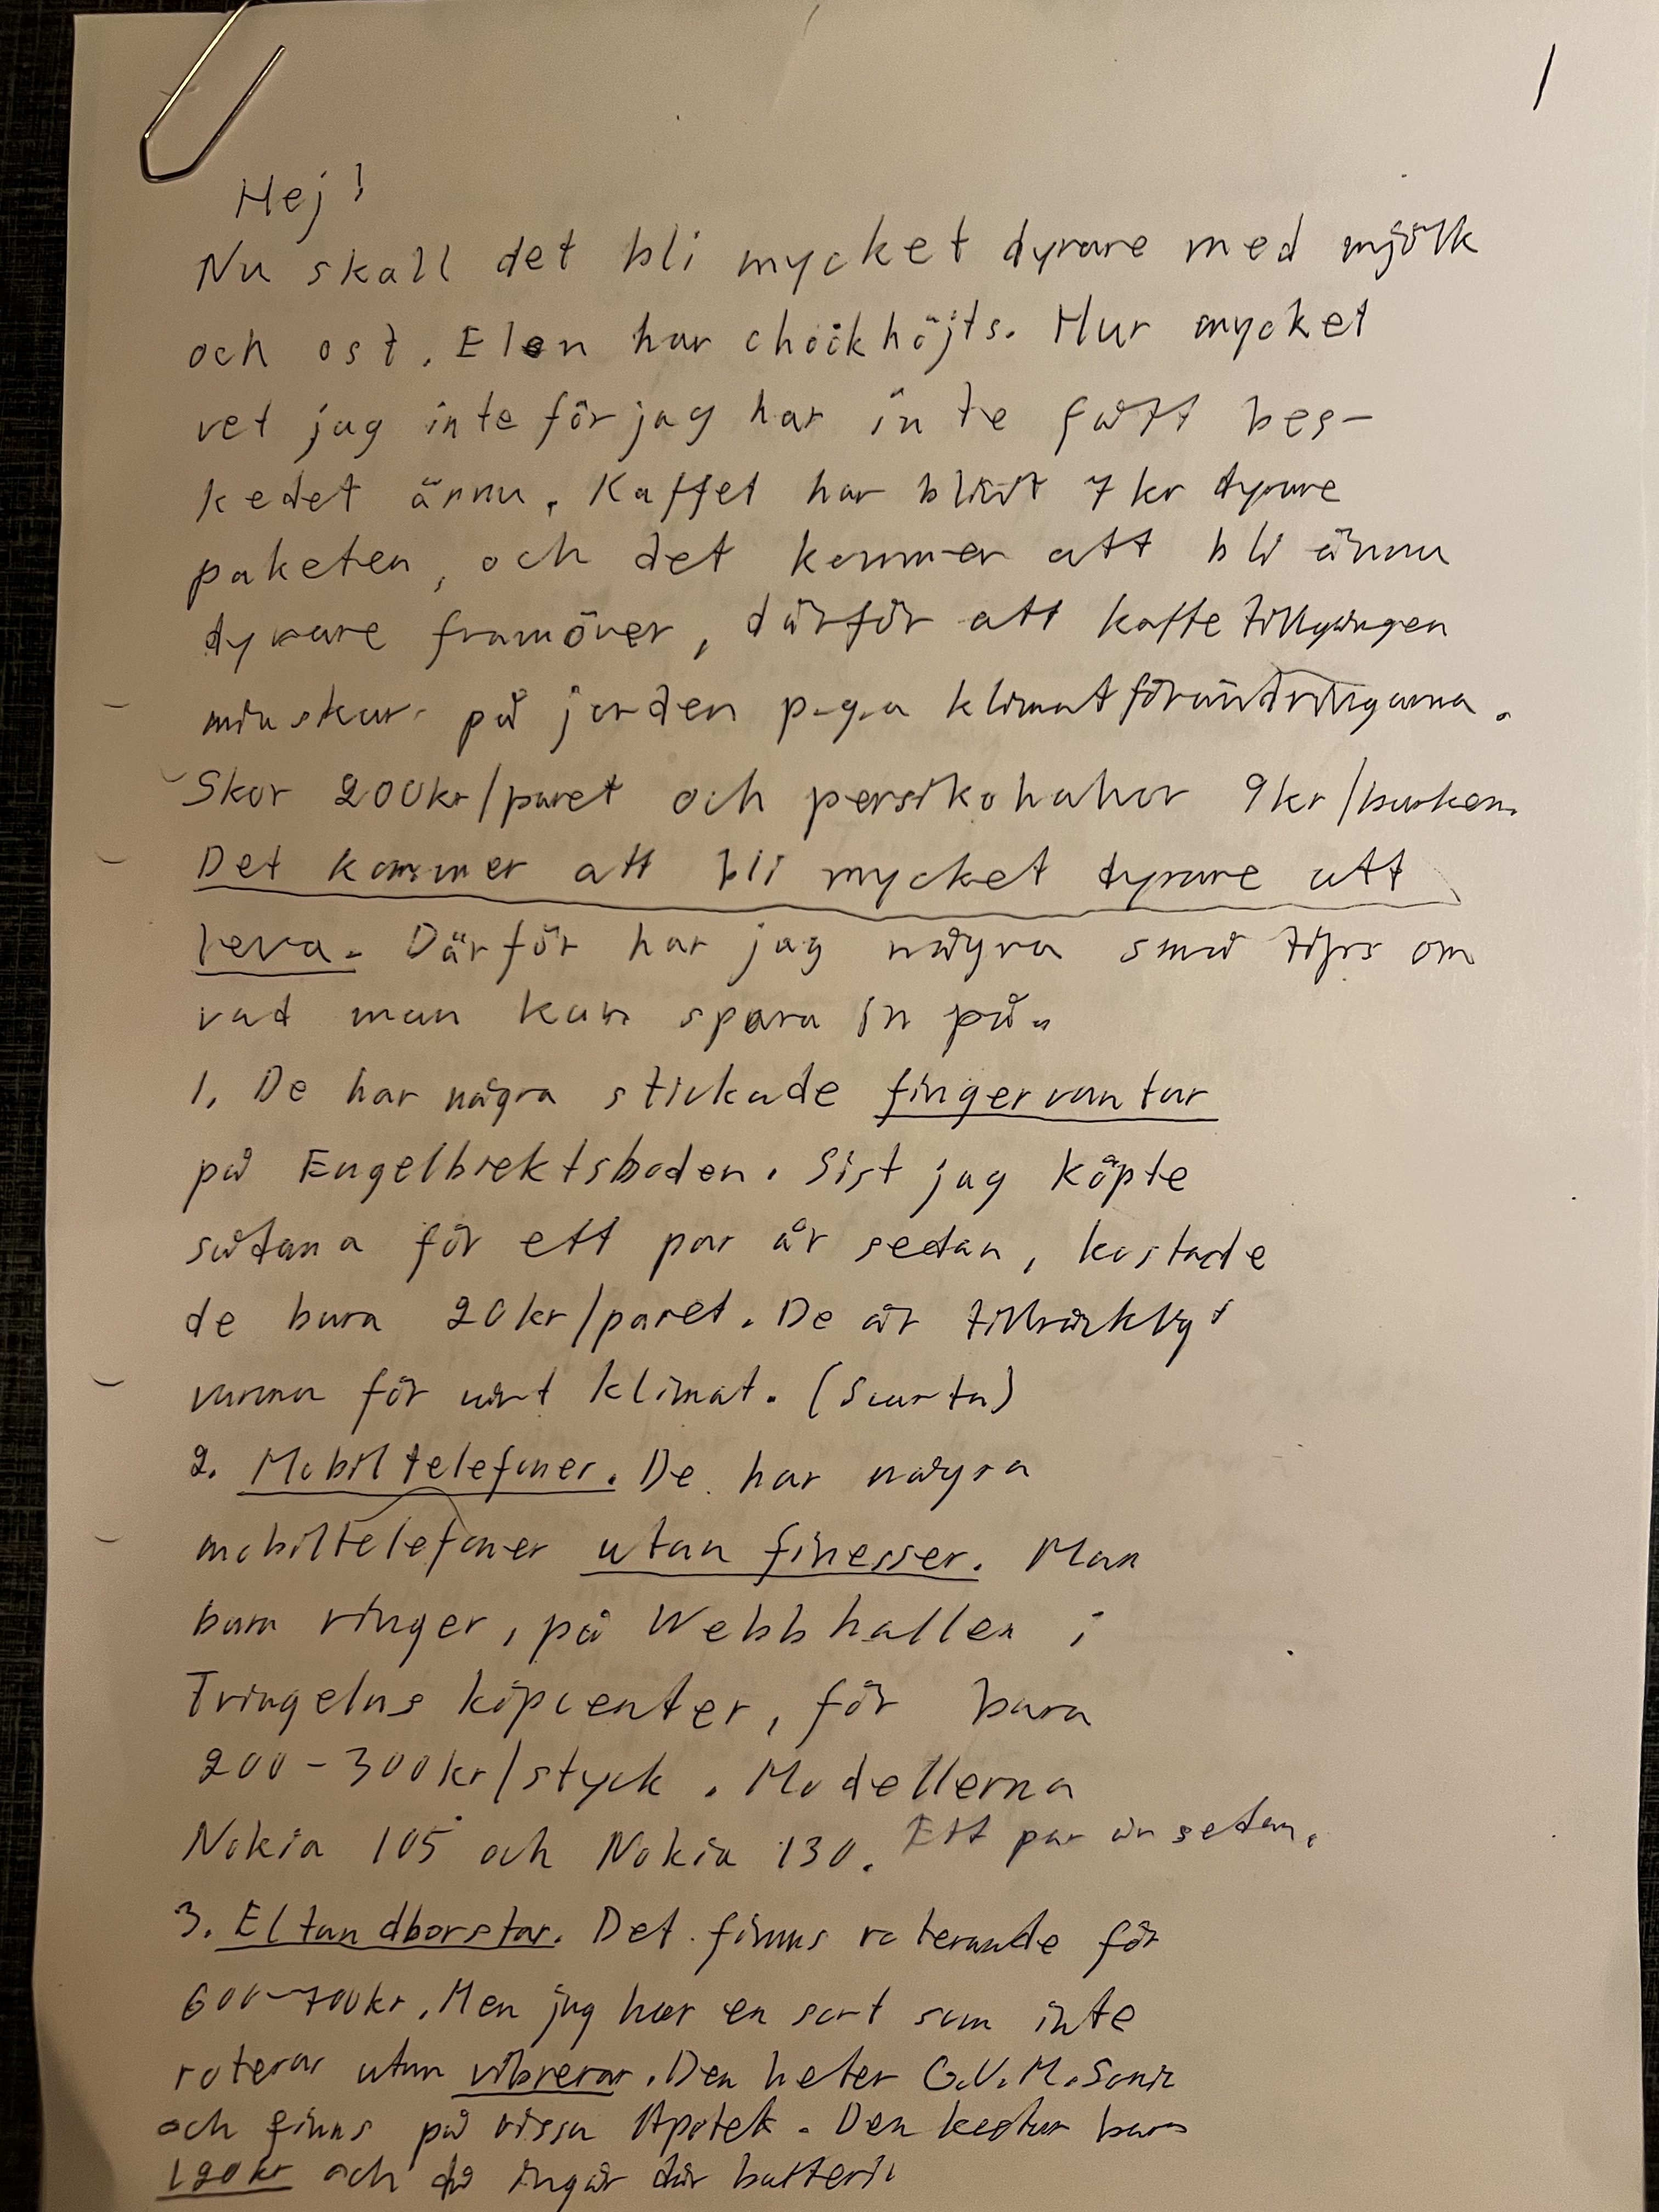 1
Hej!
Nu skall det bli mycket dyrare med mjölk
och ost. Elen har chockhöjts. Hur mycket
vet jag inte för jag har inte fått bes-
kedet ännu. Kaffet har blivit 7 kr dyrare
paketen, och det kommer att bli ännu
dyrare framöver, därför att kaffetillgången
minskar på jorden p.g.a klimatförändringarna.
Skor 200kr/paret och persikohalvor 9kr/burken.
Det kommer att bli mycket dyrare att
leva. Därför har jag några små tips om
vad man kan spara in på.
1. De har några stickade fingervantar
på Engelbrektsboden. Sist jag köpte
sådana för ett par år sedan, kostade
de bara 20kr/paret. De är tillräckligt
varma för vårt klimat. (Svarta)
2. Mobiltelefoner. De har några
mobiltelefoner utan finesser. Man
bara ringer, på Webbhallen i
Tringelns köpcenter, för bara
200-300kr/styck. Modellerna
Nokia 105 och Nokia 130. Ett par år sedan.
3. Eltandborstar. Det finns roterande för
600-700kr. Men jag har en sort som inte
roterar utan vibrerar. Den heter G.U.M. Sonic
och finns på vissa Apotek. Den kostar bara
120kr och då ingår där batteri